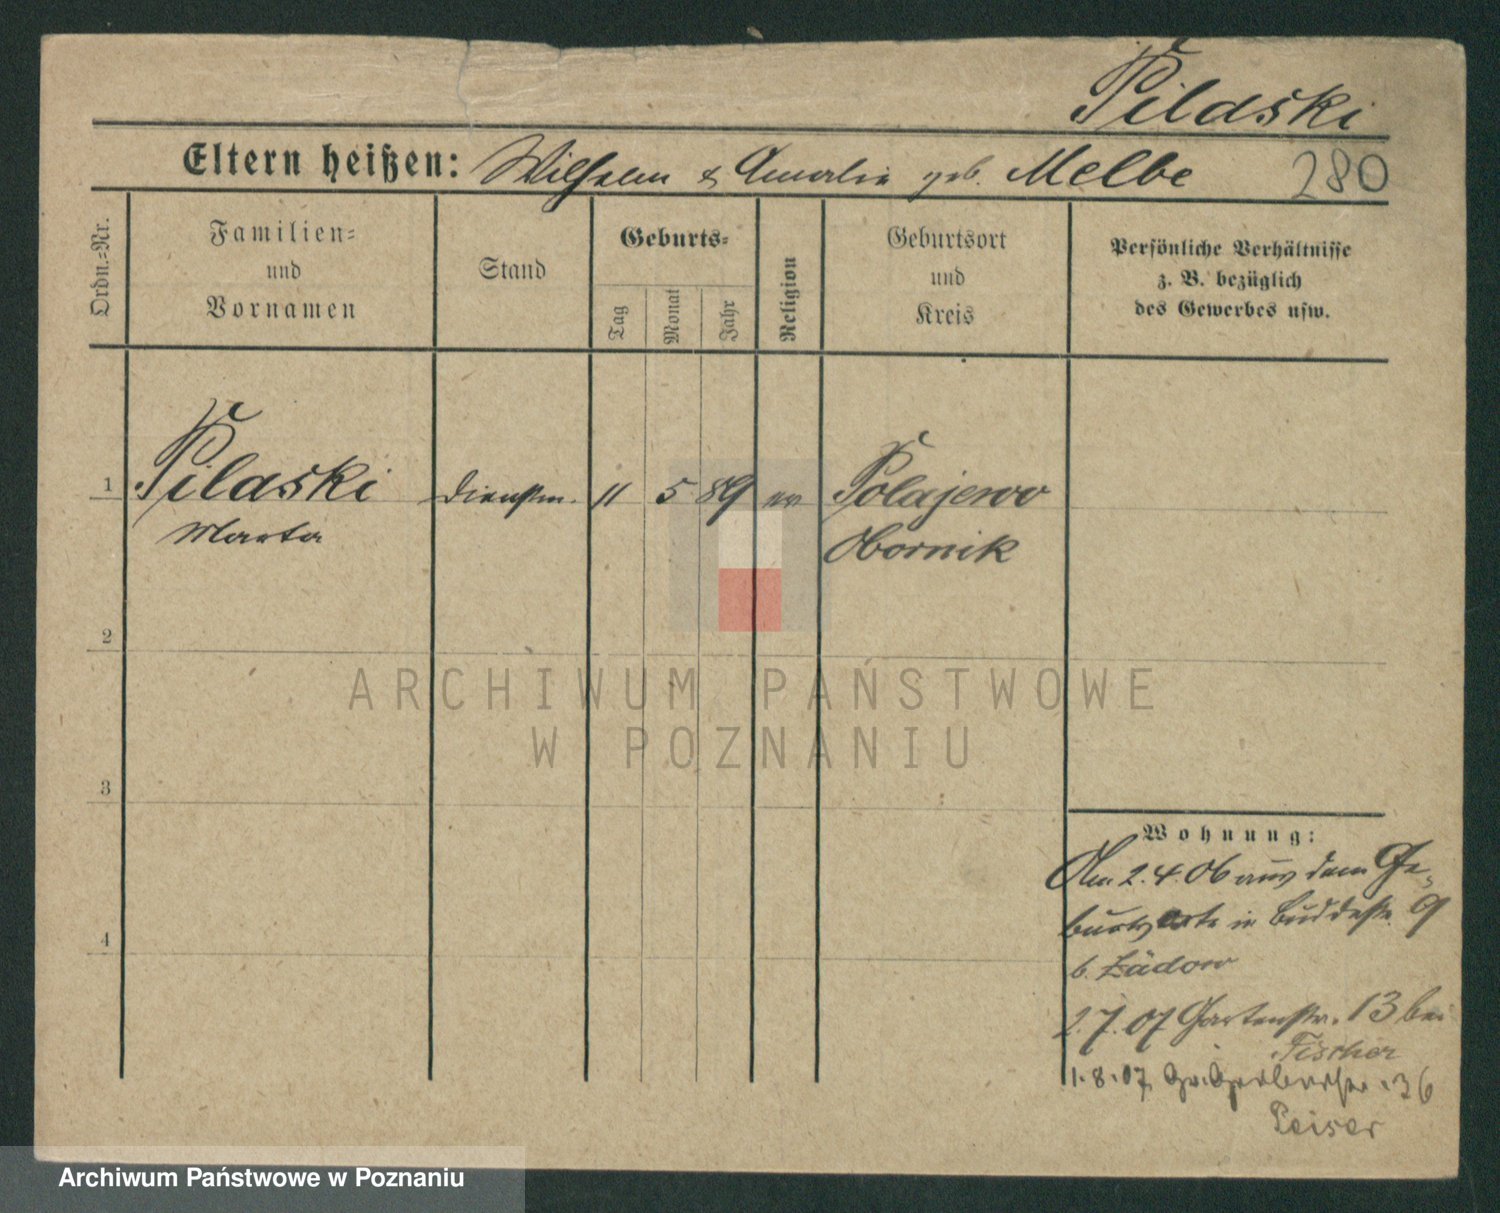 Pilaski
Eltern heißen: Wilhelm & Amalie geb. Melbe
280
Ordn.-Nr.
Familien-
und
Vornamen
Stand
Geburts-
Tag
Monat
Jahr
Religion
Geburtsort
und
Kreis
Persönliche Verhältnisse
z. B. bezüglich
des Gewerbes usw.
1
Pilaski
Marta
Dienstm.
11
5
89
ev
Polajewo
Obornik
2
3
4
Wohnung:
Am 2.4.06 aus dem Ge-
burtsorte in Buddestr. 9
b. Lädow
2.7.07 Gartenstr. 13 bei
Fischer
1.8.07 Gr. Gerberstr. 36
Peiser
ARCHIWUM PAŃSTWOWE
W POZNANIU
Archiwum Państwowe w Poznaniu